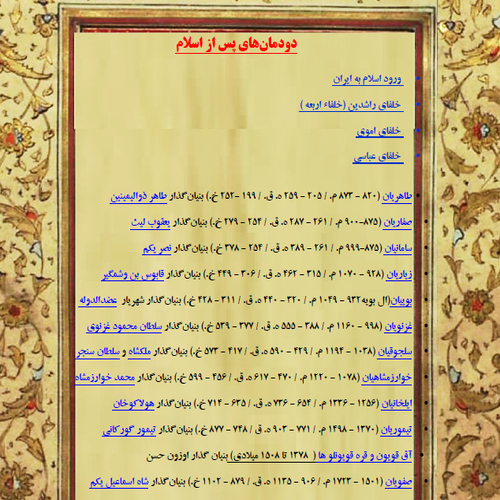 دودمان‌های پس از اسلام
ورود اسلام به ایران
خلفای راشدین (خلفاء اربعه )
خلفای اموی
خلفای عباسی
طاهریان (۸۲۰ - ۸۷۳ م. / ۲۰۵ - ۲۵۹ ه. ق. / ۱۹۹ -۲۵۲ خ.) بنیان‌گذار طاهر ذوالیمینین
صفاریان (۸۷۵-۹۰۰ م. / ۲۶۱ - ۲۸۷ ه. ق. / ۲۵۴ - ۲۷۹ خ.) بنیان‌گذار یعقوب لیث
سامانیان (۸۷۵-۹۹۹ م. / ۲۶۱ - ۳۸۹ ه. ق. / ۲۵۴ - ۳۷۸ خ.) بنیان‌گذار نصر یکم
زیاریان (۹۲۸ - ۱۰۷۰ م. / ۳۱۵ - ۴۶۲ ه. ق. / ۳۰۶ - ۴۴۹ خ.) بنیان‌گذار قابوس بن وشمگیر
بوییان(آل بویه۹۳۲ - ۱۰۴۹ م. / ۳۲۰ - ۴۴۰ ه. ق. / ۳۱۱ - ۴۲۸ خ.) بنیان‌گذار شهریار عضدالدوله
غزنویان (۹۹۸ - ۱۱۶۰ م. / ۳۸۸ - ۵۵۵ ه. ق. / ۳۷۷ - ۵۳۹ خ.) بنیان‌گذار سلطان محمود غزنوی
سلجوقیان (۱۰۳۸ - ۱۱۹۴ م. / ۴۲۹ - ۵۹۰ ه. ق. / ۴۱۷ - ۵۷۳ خ.) بنیان‌گذار ملکشاه و سلطان سنجر
خوارزمشاهیان (۱۰۷۸ - ۱۲۲۰ م. / ۴۷۰ - ۶۱۷ ه. ق. / ۴۵۶ - ۵۹۹ خ.) بنیان‌گذار محمد خوارزمشاه
ایلخانیان (۱۲۵۶ - ۱۳۳۶ م. / ۶۵۴ - ۷۳۶ ه. ق. / ۶۳۵ - ۷۱۴ خ.) بنیان‌گذار هولاکوخان
تیموریان (۱۳۷۰ - ۱۴۹۸ م. / ۷۷۱ - ۹۰۳ ه. ق / ۷۴۸ - ۸۷۷ خ.) بنیان‌گذار تیمور گورکانی
آق قویون و قره قویونلو ها ( ۱۳۷۸ تا ۱۵۰۸ میلادی) بنیان گذار اوزون حسن
صفویان (۱۵۰۱ - ۱۷۲۳ م. / ۹۰۶ - ۱۱۳۵ ه. ق. / ۸۷۹ - ۱۱۰۲ خ.) بنیان‌گذار شاه اسماعیل یکم